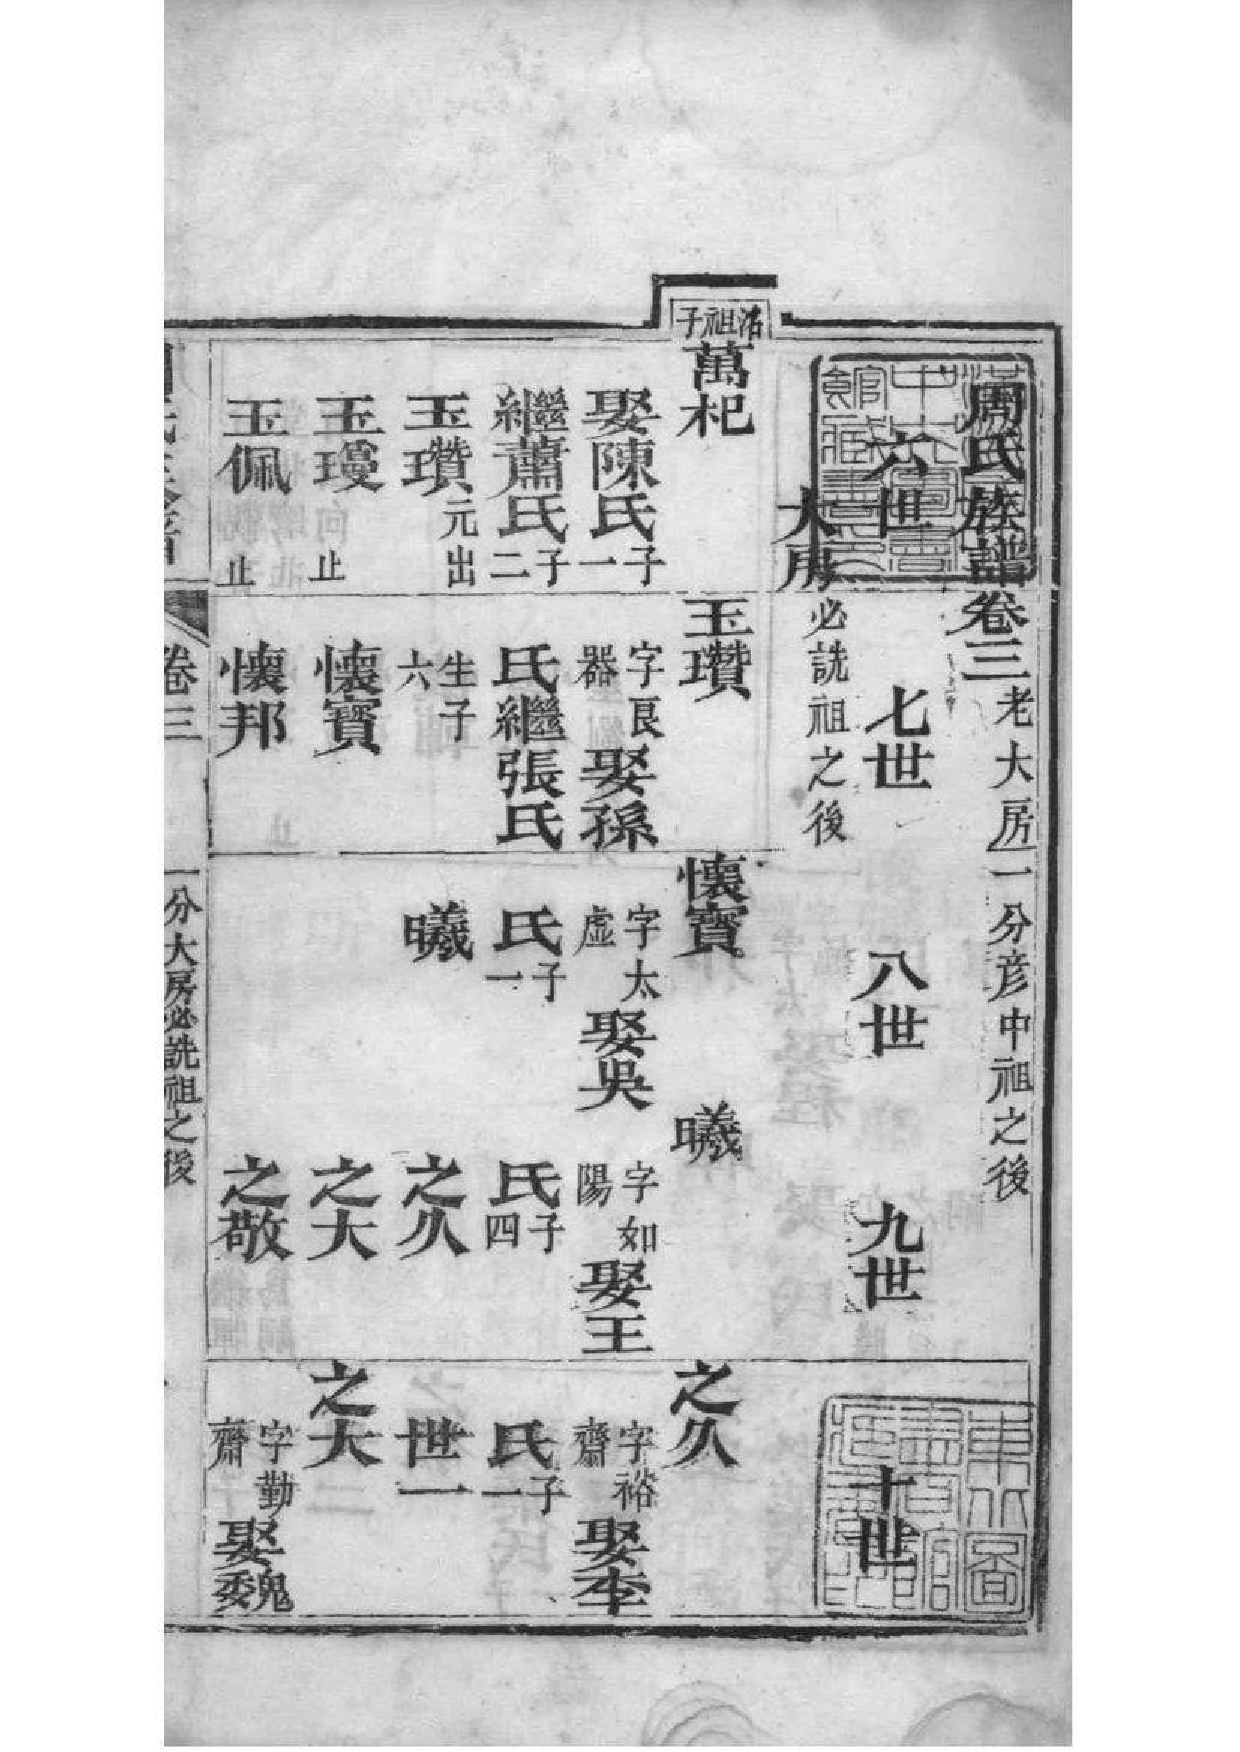 周氏族譜卷三 老大房一分彦中祖之後
六世 七世 八世 九世 十世
大房 必詵祖之後
洺祖子
萬杞
娶陳氏 子一
繼蕭氏 子二
玉瓚 元出
玉璦 止
玉佩 止
玉瓚
字良器 娶孫
氏繼張氏
生子六
懷寶
懷邦
懷寶
字太虛 娶吳
氏 子一
曦
曦
字如陽 娶王
氏 子四
之久
之大
之敬
之久
字裕齋 娶李
氏 子一
世一
之大
字勤齋 娶魏
卷三 一分大房必詵祖之後